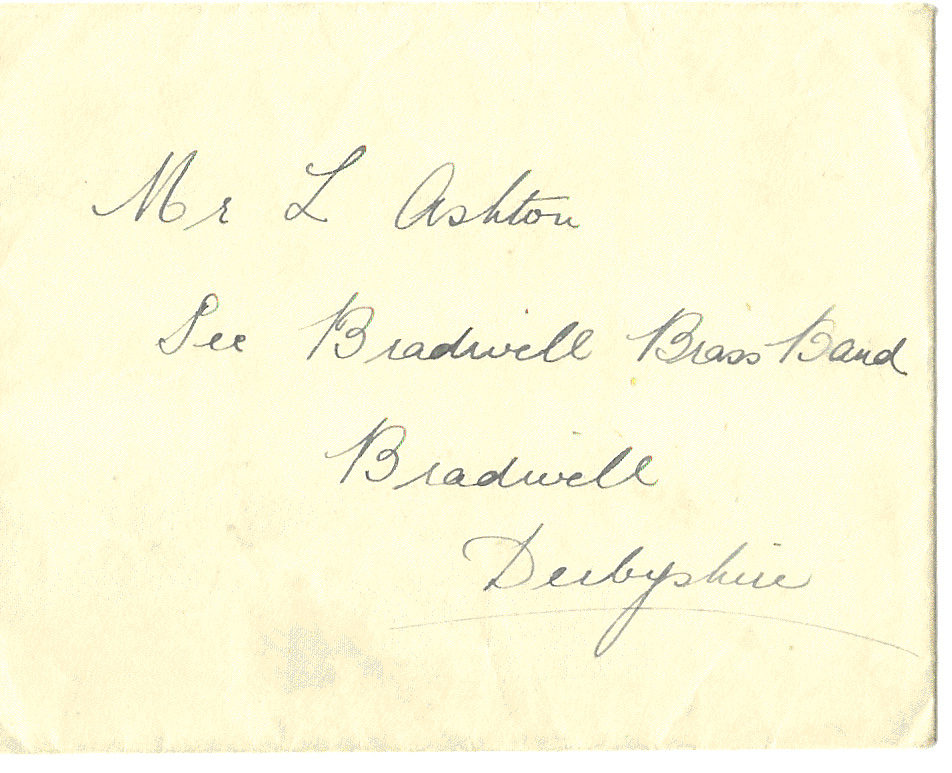 Mr L Ashton
Sec Bradwell Brass Band
Bradwell
Derbyshire